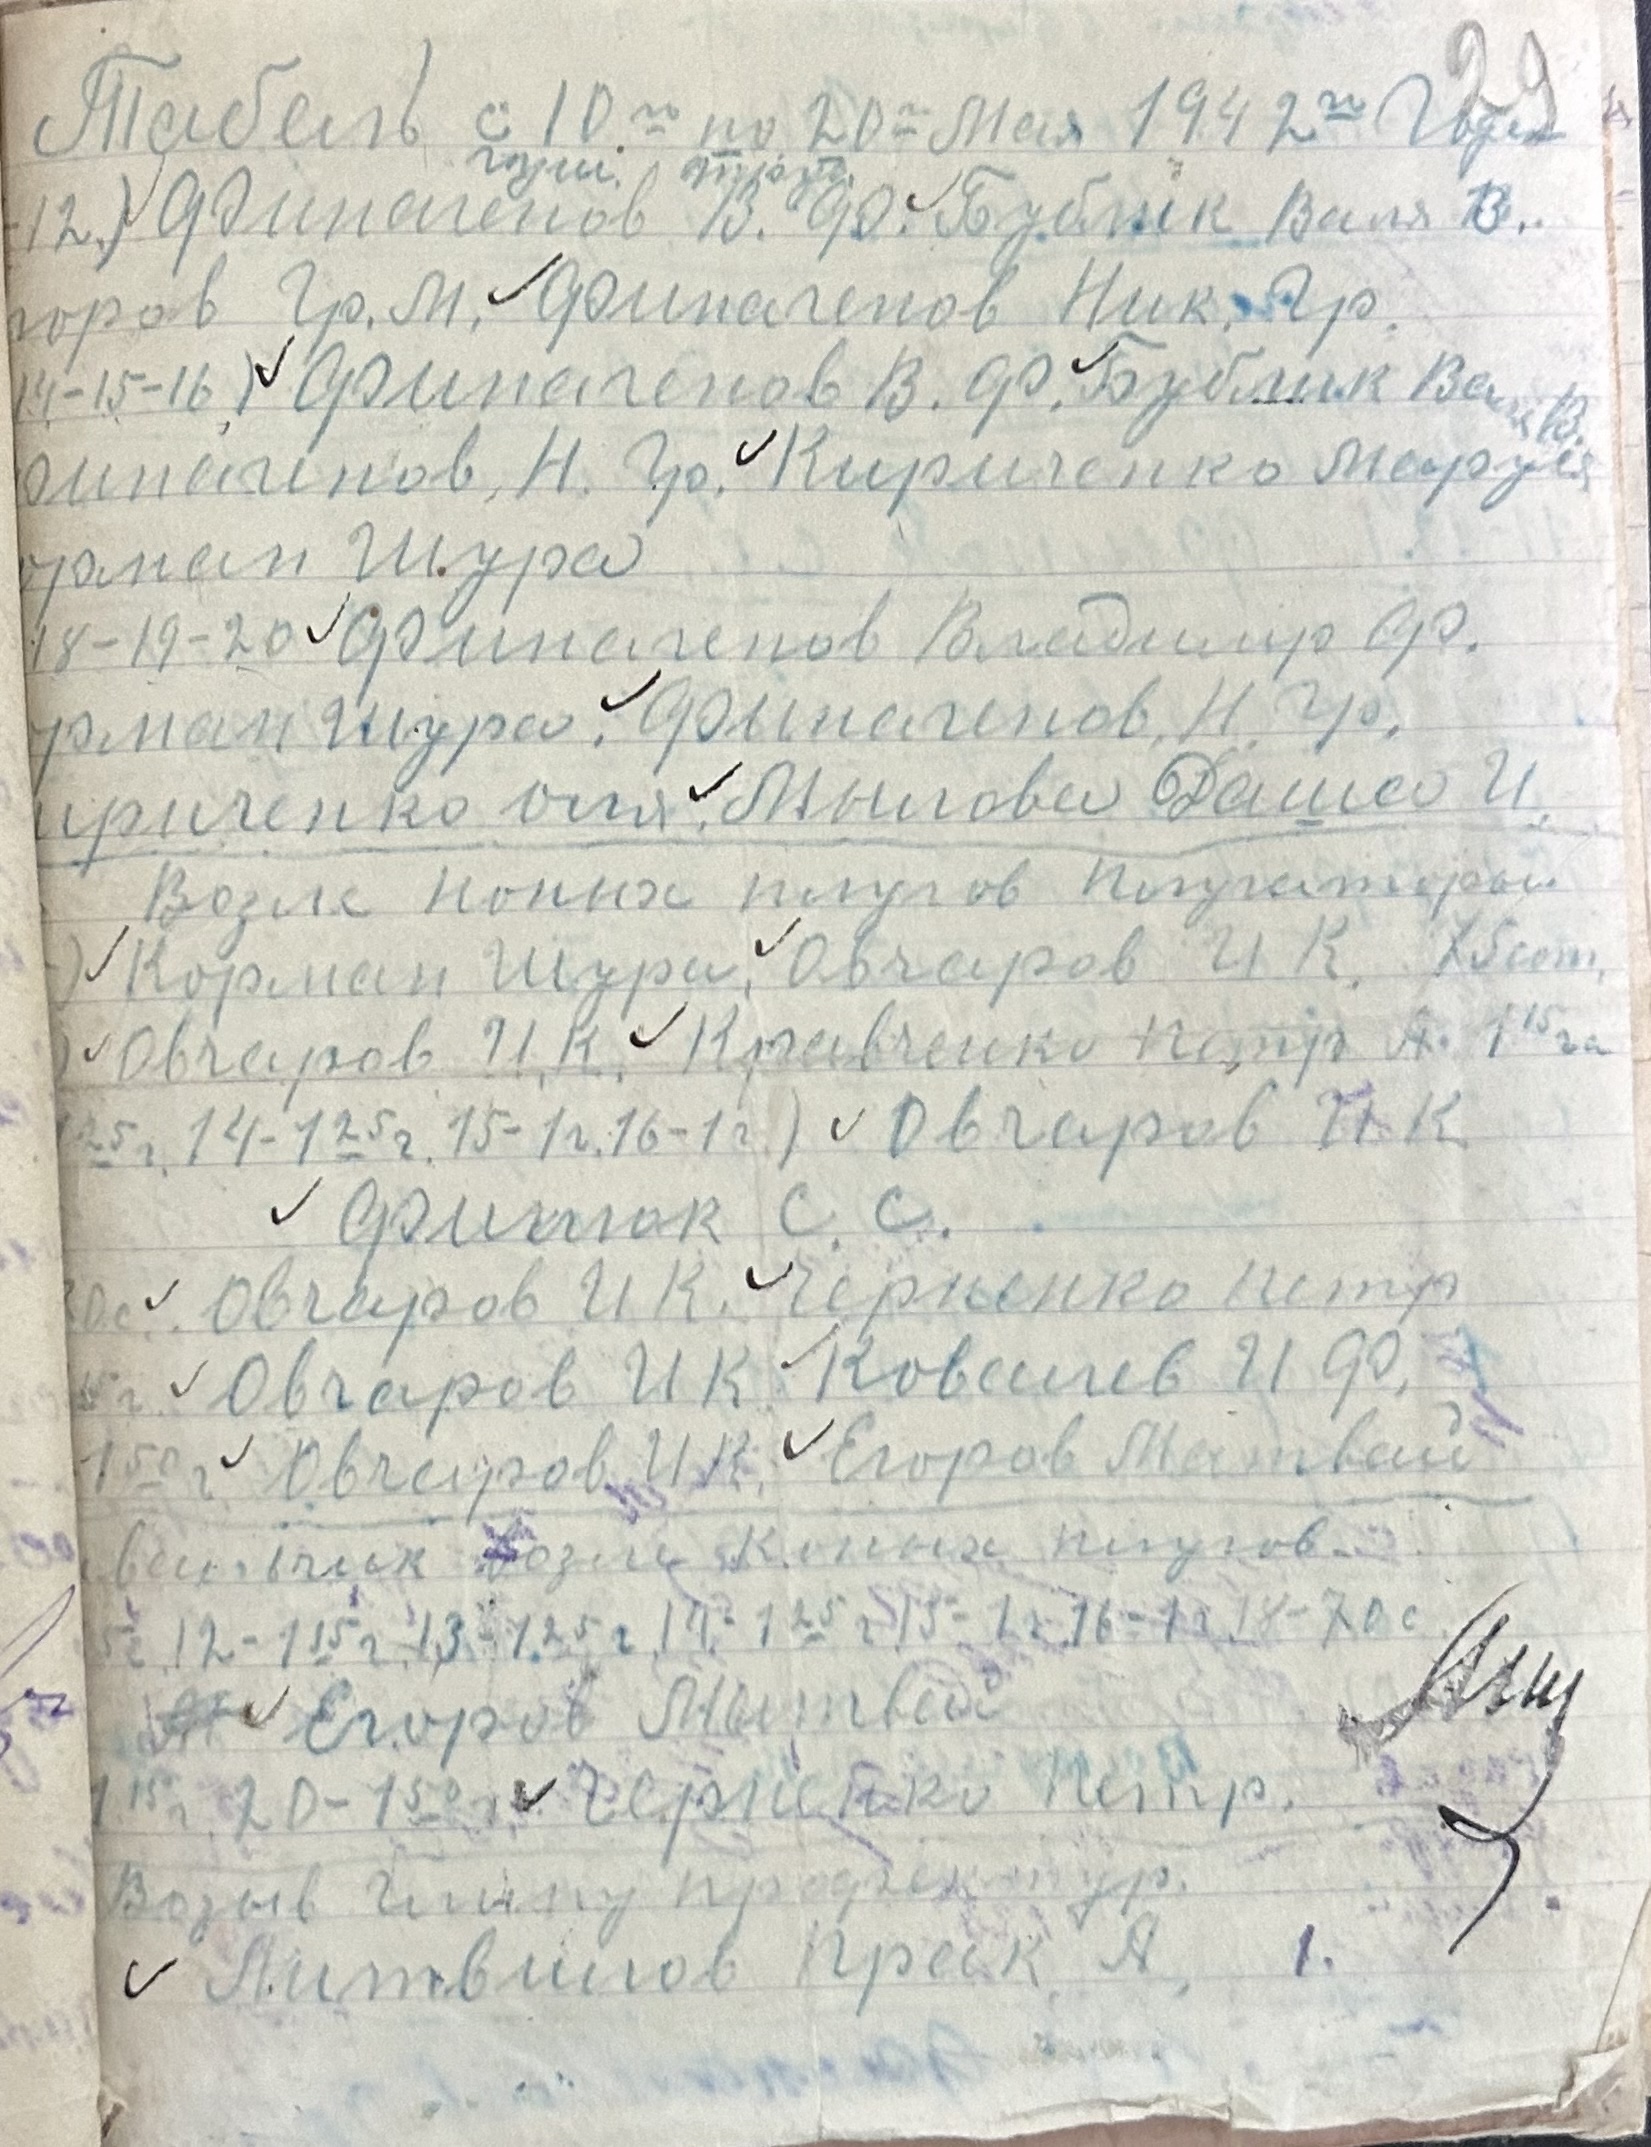 29
Табель с 10го по 20го Мая 1942го Года
-12.) Финагенов В. Ф. Бублик Валя В.
горов Гр. М. Финагенов Ник. Гр.
14-15-16) Финагенов В. Ф. Бублик Валя В.
финагенов, Н. Гр. Кириченко Маруся
орман Шура
18-19-20 Финагенов Владимир Ф.
орман Шура. Финагенов, Н. Гр.
ириченко Оля. Мылова Даша И.
Возле конных плугов плугаторы
) Корман Шура, Овчаров И К. 75сот.
) Овчаров И.К. Кравченко Петр А. 1 15 га
25 г. 14-1 25 г. 15-1 г. 16-1 г.) Овчаров И К
С. С.
Овчаров И К. Черненко Петр
15 г. Овчаров И К Ковалев И Ф.
1 50 г Овчаров И К. Егоров Матвей
возле конных плугов
12-1 15 г. 13-1 25 г. 14-1 25 г. 15-1 г. 16-1 г. 18-70 с
Егоров Матвей
1 15 г. 20-1 50 г. Черненко Петр.
глину
Литвинов А. 1.